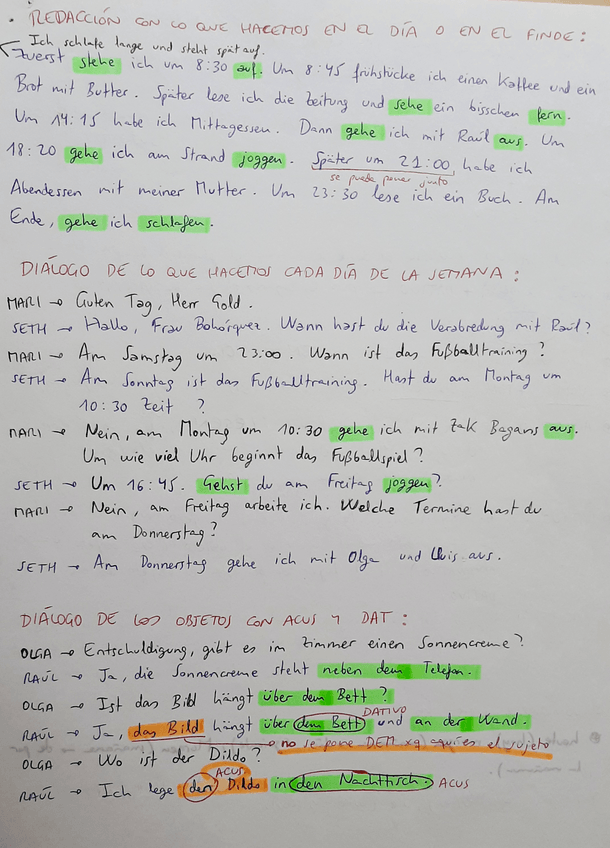 · REDACCIÓN CON LO QUE HACEMOS EN EL DÍA O EN EL FINDE:
Ich schlafe lange und steht spät auf.
Zuerst stehe ich um 8:30 auf. Um 8:45 frühstücke ich einen Kaffee und ein
Brot mit Butter. Später lese ich die Zeitung und sehe ein bisschen fern.
Um 14:15 habe ich Mittagessen. Dann gehe ich mit Raúl aus. Um
18:20 gehe ich am Strand joggen. Später um 21:00, habe ich
se puede poner junto
Abendessen mit meiner Mutter. Um 23:30 lese ich ein Buch. Am
Ende, gehe ich schlafen.
DIÁLOGO DE LO QUE HACEMOS CADA DÍA DE LA SEMANA:
MARI → Guten Tag, Herr Gold.
SETH → Hallo, Frau Bohórquez. Wann hast du die Verabredung mit Raúl?
MARI → Am Samstag um 23:00. Wann ist das Fußballtraining?
SETH → Am Sonntag ist das Fußballtraining. Hast du am Montag um
10:30 Zeit ?
MARI → Nein, am Montag um 10:30 gehe ich mit Zak Bagans aus.
Um wie viel Uhr beginnt das Fußballspiel?
SETH → Um 16:45. Gehst du am Freitag joggen?
MARI → Nein, am Freitag arbeite ich. Welche Termine hast du
am Donnerstag?
SETH → Am Donnerstag gehe ich mit Olga und Lluis aus.
DIÁLOGO DE LOS OBJETOS CON ACUS Y DAT:
OLGA → Entschuldigung, gibt es im Zimmer einen Sonnencreme?
RAÚL → Ja, die Sonnencreme steht neben dem Telefon.
OLGA → Ist das Bild hängt über dem Bett?
DATIVO
RAÚL → Ja, das Bild hängt über dem Bett und an der Wand.
no se pone DEM xq aquí es el sujeto
OLGA → Wo ist der Dildo?
ACUS
RAÚL → Ich lege den Dildo in den Nachttisch. ACUS